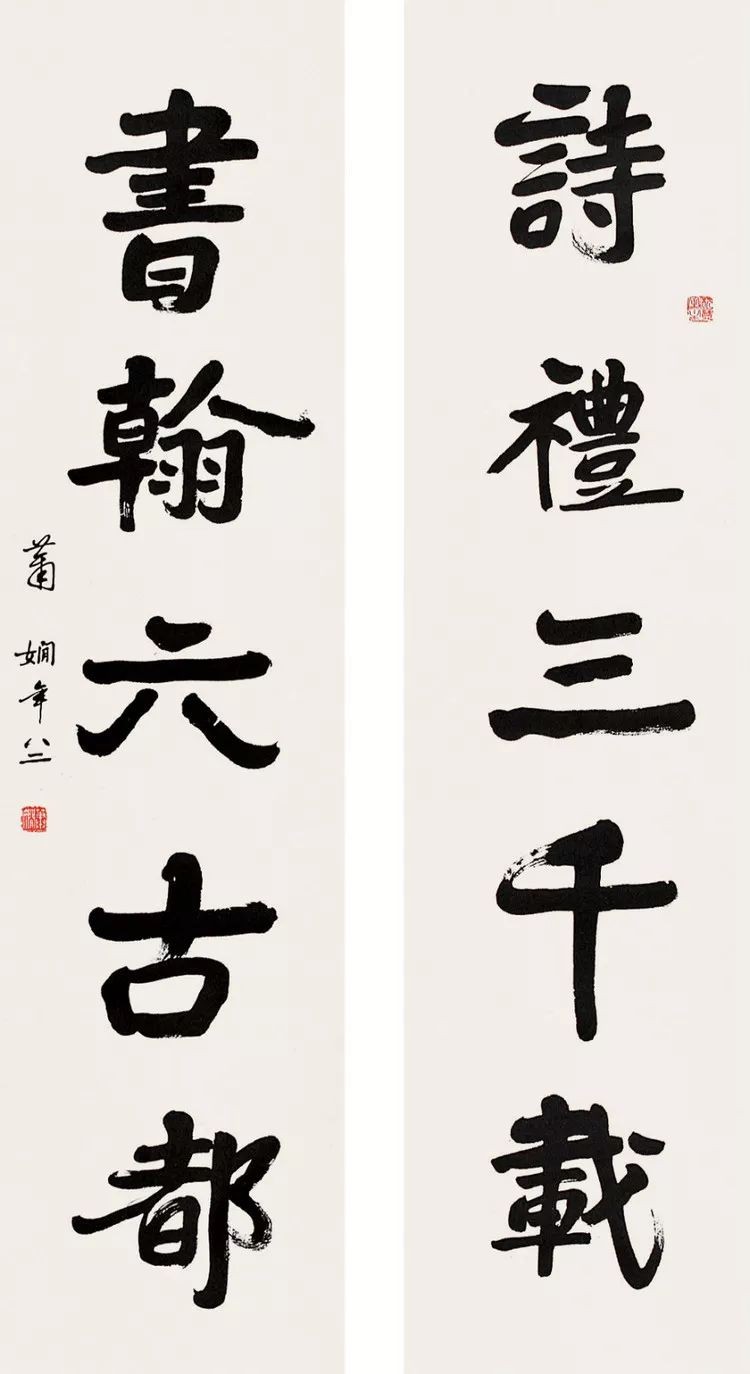 詩禮三千載
書翰六古都
蕭嫻年八二